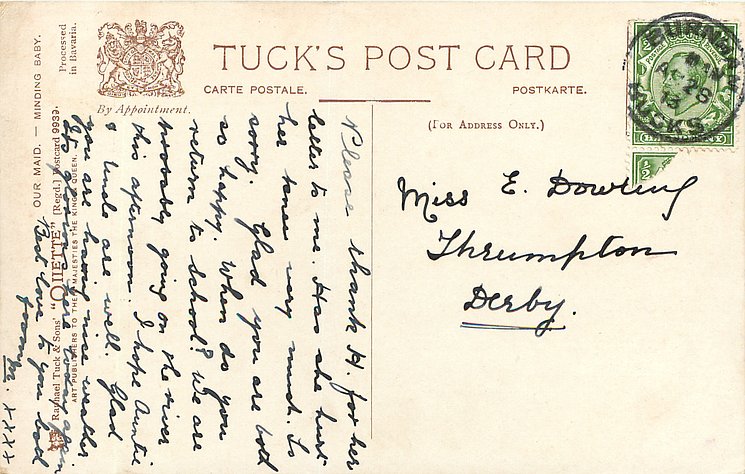 TUCK'S POST CARD
CARTE POSTALE.
POSTKARTE.
By Appointment.
(For Address Only.)
OUR MAID. — MINDING BABY.
Processed
in Bavaria.
Raphael Tuck & Sons' "OILETTE" [Regd.] Postcard 9939.
ART PUBLISHERS TO THEIR MAJESTIES THE KING & QUEEN.
BURNHAM
AP 28
13
BUCKS
½
Miss E. Dowling
Thrumpton
Derby.
Please thank H. for her
letter to me. Has she hurt
her knee very much. So
sorry. Glad you are both
so happy. When do you
return to school? We are
probably going on the river
this afternoon. I hope Auntie
& Uncle are well. Glad
you are having nice weather
its here again
Best love to you both
from
M. xxxx